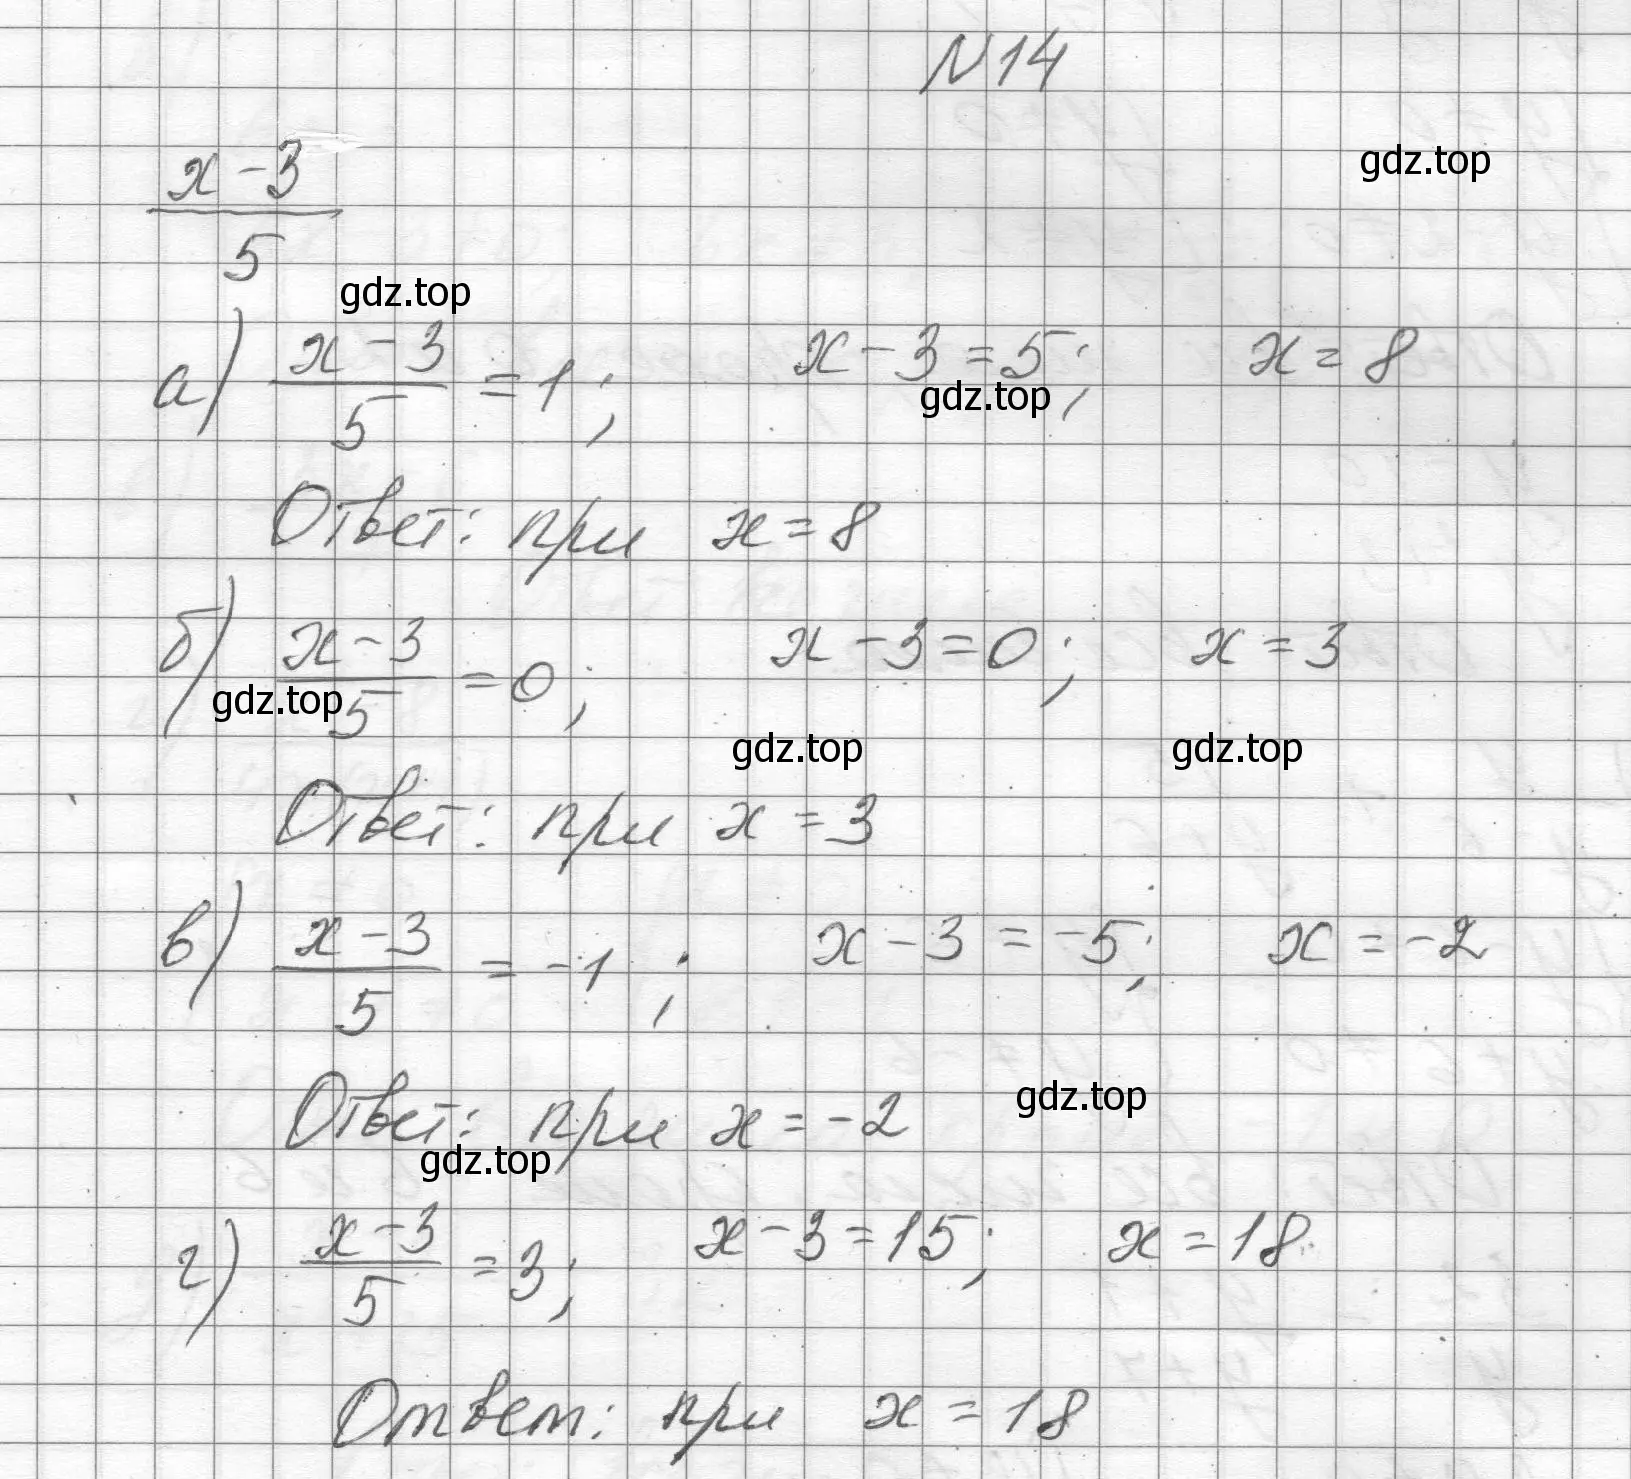 N14
gdz.top
x-3
5
gdz.top
а) x-3/5 = 1; x-3=5; x=8
gdz.top
Ответ: при x=8
б) x-3/5 = 0; x-3=0; x=3
gdz.top
gdz.top gdz.top
Ответ: при x=3
в) x-3/5 = -1; x-3=-5; x=-2
gdz.top
Ответ: при x=-2
gdz.top
г) x-3/5 = 3; x-3=15; x=18
Ответ: при x=18